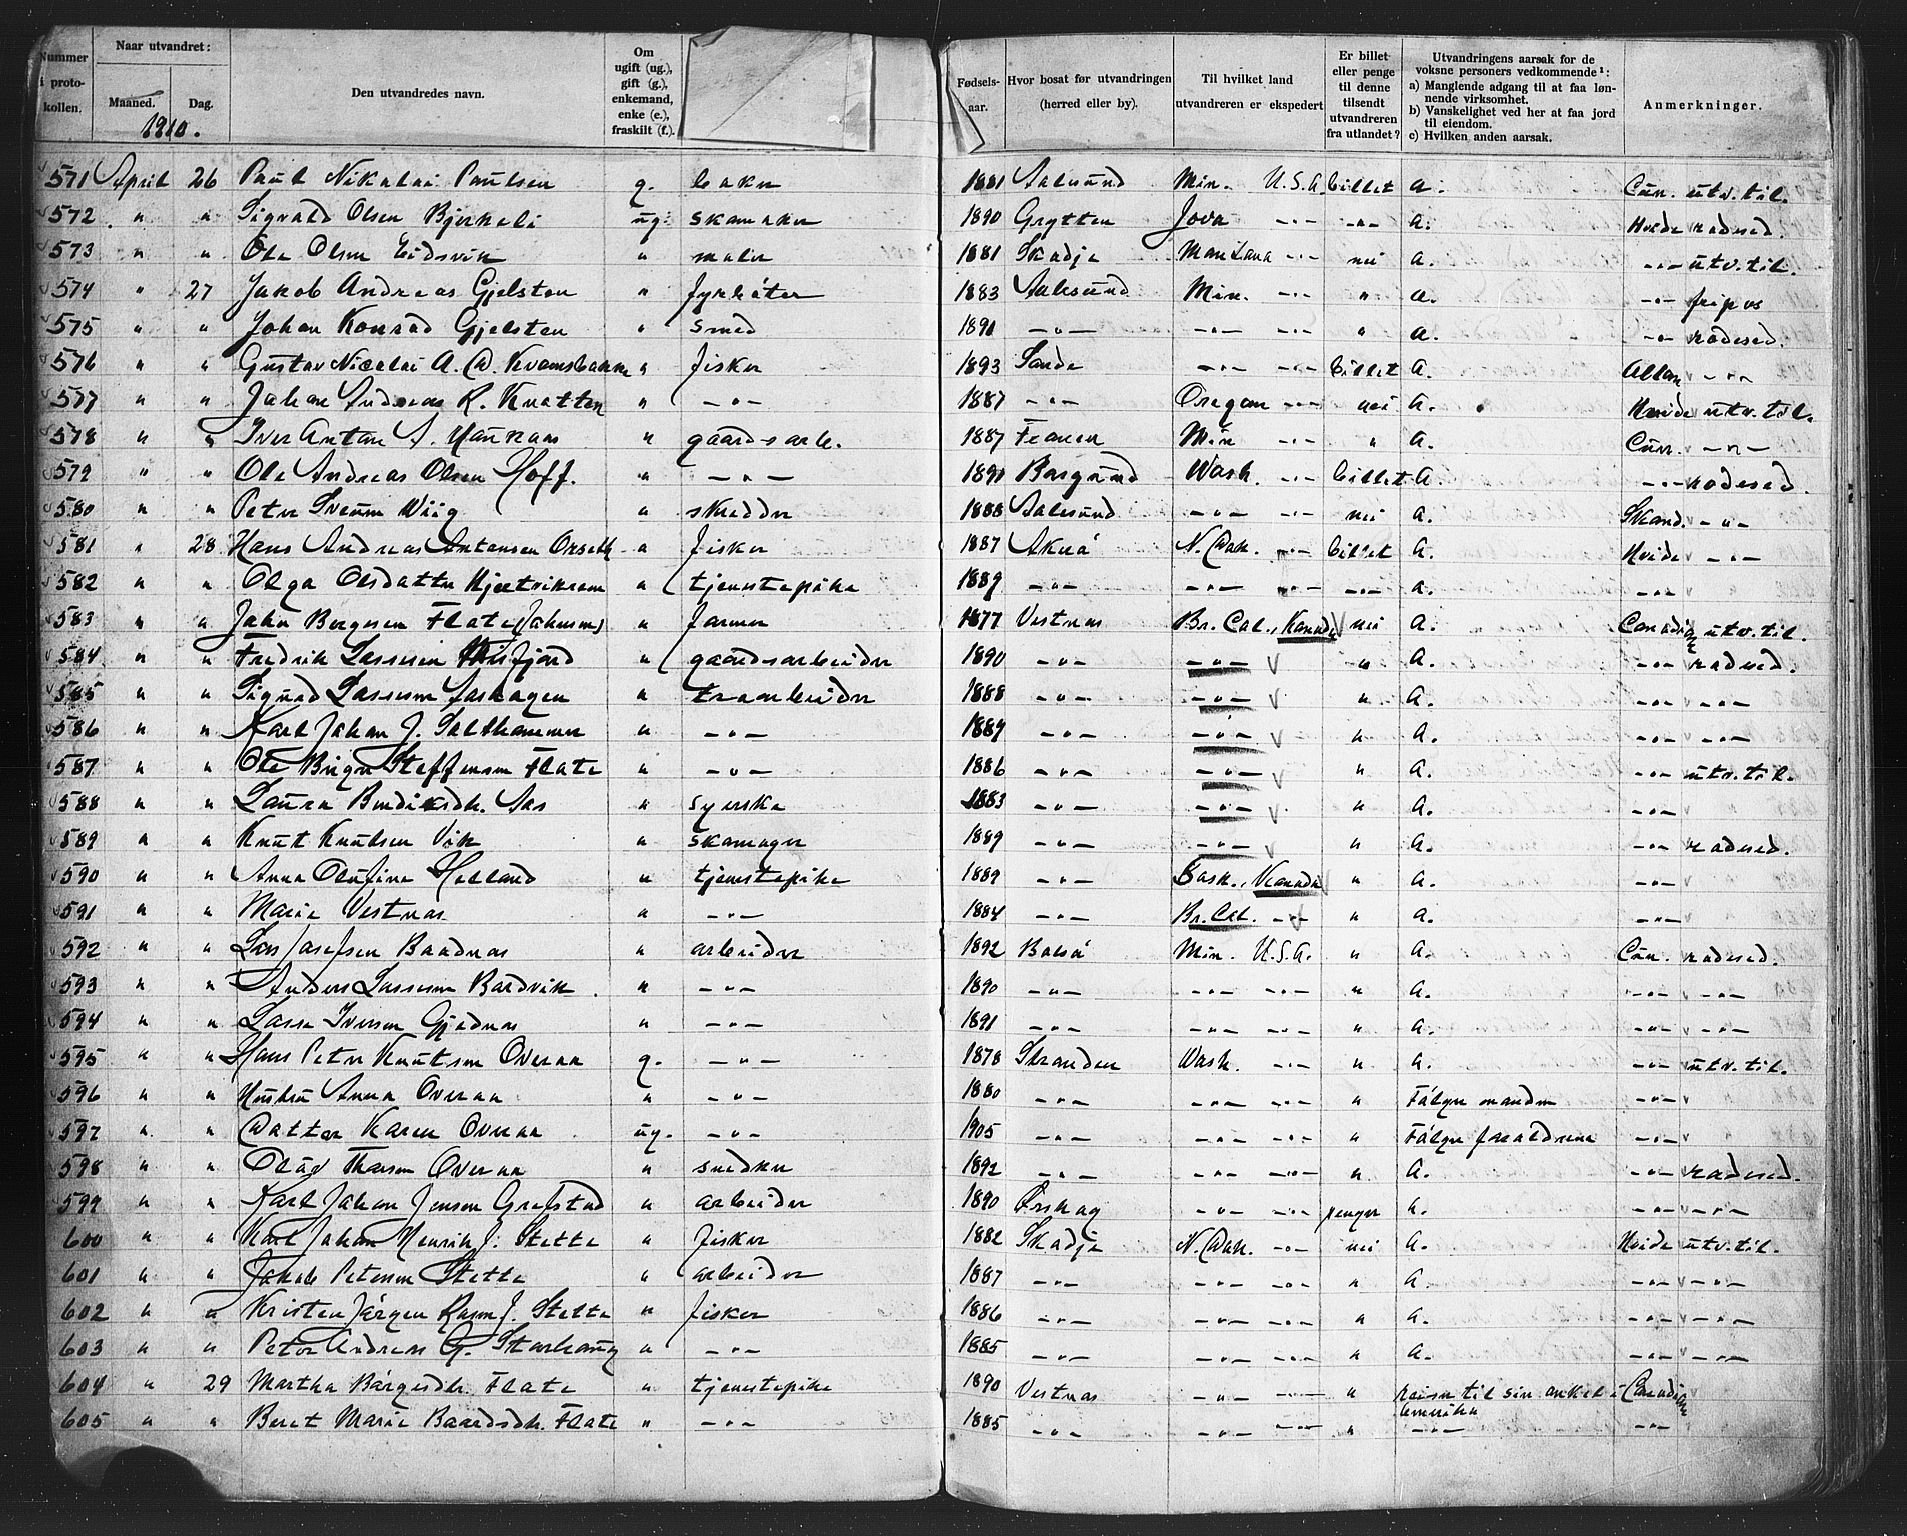 Nummer i protokollen. Naar utvandret: Maaned. Dag. Den utvandredes navn. Om ugift (ug.), gift (g.), enkemand, enke (e.), fraskilt (f.). Fødselsaar. Hvor bosat før utvandringen (herred eller by). Til hvilket land utvandreren er ekspedert Er billet eller penge til denne tilsendt utvandreren fra utlandet? Utvandringens aarsak for de voksne personers vedkommende¹: a) Manglende adgang til at faa lønnende virksomhet. b) Vanskelighet ved her at faa jord til eiendom. c) Hvilken anden aarsak. Anmerkninger.
1910.
571 April 26 Paul Nikolai Paulsen g. baker 1881 Aalesund Min. U.S.A billet a. Cun. utv. til.
572 " " Sigvald Olsen Bjerkeli ug. skomaker 1890 Grytten Jova -"- -"- a. Hvide radesed.
573 " " Ole Olsen Eidsvik " maler 1881 Skodje Montana -"- nei a. -"- utv. til.
574 " 27 Jakob Andreas Gjelsten " fyrbøter 1883 Aalesund Min. -"- " a. -"- fripas
575 " " Johan Konrad Gjelsten " smed 1891 -"- -"- -"- " a. -"- radesed.
576 " " Gustav Nicolai A. D. Kvamsbakke " fisker 1893 Sande -"- -"- billet a. Allan -"-
577 " " Johan Andreas R. Knotten " -"- 1887 -"- Oregon -"- nei a. Hvide utv. til.
578 " " Iver Anton A. " gaardsarb. 1887 Min -"- " a. Cun. -"-
579 " " Ole Andreas Olsen Hoff. " -"- 1890 Borgund Wash. -"- billet a. -"- radesed.
580 " " Peter Wiig " skredder 1888 Aalesund -"- -"- nei a. Skand. -"-
581 " 28 Hans Andreas Antonsen Orseth " fisker 1887 Aknö N. Dak. -"- billet a. Hvide -"-
582 " " Olga Olsdatter Hjertvikrem " tjenestepike 1889 -"- -"- -"- -"- a. -"-
583 " " John Borgesen Flate (Johnsen) " farmer 1877 Vestnes Br. Col., Kanada nei a. Canadian utv. til.
584 " " Fredrik Lassesen fjord " gaardsarbeider 1890 -"- -"- " a. -"- radesed.
585 " " Sigurd Lassesen " trearbeider 1888 -"- -"- " a. -"- -"-
586 " " Karl Johan J. Salthammer " -"- 1889 -"- -"- " a. -"- -"-
587 " " Ole Steffensen Flate " -"- 1886 -"- -"- " a. -"- utv. til.
588 " " Laura Bendiksdtr. Aas " syerske 1883 -"- -"- " a. -"-
589 " " Knut Knutsen Vik " skomager 1889 -"- -"- " a. -"- radesed.
590 " " Anna Olufine Helland " tjenestepike 1889 -"- Sask., Kanada " a. -"-
591 " " Marie Vestnes " -"- 1884 -"- Br. Col. -"- " a. -"-
592 " " Lars Josefsen Baadnes " arbeider 1892 Bolsö Min. U.S.A. " a. Cun. radesed.
593 " " Anders Lassesen Bardvik " -"- 1890 -"- -"- -"- " a. -"- -"-
594 " " Lasse Iversen Gjednes " -"- 1891 -"- -"- -"- " a. -"- -"-
595 " " Hans Peter Knutsen Overaa g. -"- 1878 Stranden Wash. -"- " a. -"- utv. til.
596 " " Hustru Anna Overaa " -"- 1880 -"- -"- -"- " Følger manden -"-
597 " " Datter Karen Overaa ug. -"- 1905 -"- -"- -"- " Følger forældrene -"-
598 " " Oluf Overaa " snedker 1892 -"- -"- -"- " a. -"- radesed.
599 " " Karl Johan Jensen Grebstad " arbeider 1890 Ørskog -"- -"- penger a. -"- -"-
600 " " Karl Johan Henrik J. Stette " fisker 1882 Skodje N. Dak. -"- nei a. Hvide utv. til.
601 " " Jakob Petersen Stette " arbeider 1887 -"- -"- -"- " a. -"- -"-
602 " " Kristen Jørgen Rasm. J. Stette " fisker 1886 -"- -"- -"- " a. -"- -"-
603 " " Peter Andreas G. Storhaug " -"- 1885 -"- -"- -"- " a. -"- -"-
604 " 29 Martha Børgesdtr. Flate " tjenestepike 1890 Vestnes -"- -"- " reiser til sin onkel i Amerika Canadian
605 " " Beret Marie Baardsdtr. Flate " -"- 1885 -"- -"- -"- " -"- -"-